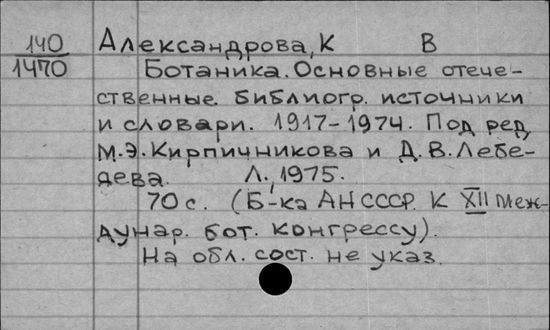 140 Александрова, К В
1470 Ботаника. Основные отече-
ственные библиогр. источники
и словари. 1917-1974. Под ред.
М.Э. Кирпичникова и Д.В. Лебе-
дева. Л., 1975.
70 с. (Б-ка АН СССР. К XII Меж-
дунар. бот. конгрессу).
На обл. сост. не указ.